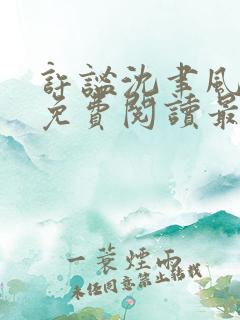 許謐沈聿風
免費閱讀最
一蓑煙雨
未经同意禁止转载